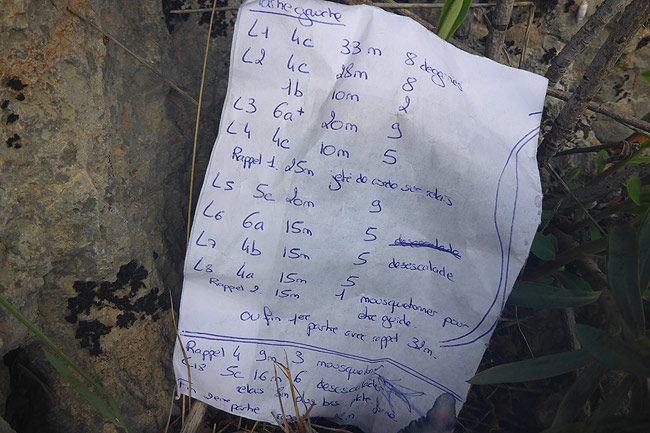 gauche
L1 4c 33m 8 degaines
L2 4c 28m 8
1b 10m 2
L3 6a+ 20m 9
L4 4c 10m 5
Rappel 1. 25m jeté de corde sur relais
L5 5c 20m 9
L6 6a 15m 5
L7 4b 15m 5 desescalade
L8 4a 15m 5
Rappel 2. 15m 1 mousquetonner pour
etre guide.
ou fin 1er
partie avec rappel
Rappel 4 9m 3
5c 16m 6 desescalade
relais bas
partie